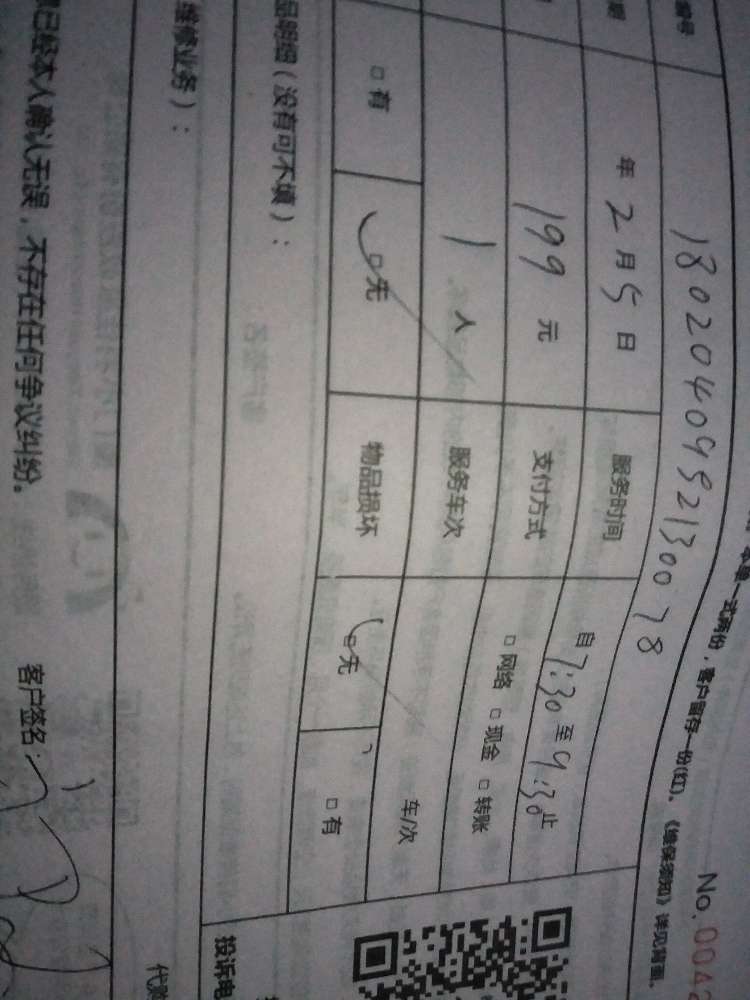 一式两份，客户留存一份(红)。《维保须知》详见背面。 No.004
编号 1802040952130078
期 年2月5日 服务时间 自7:30至9:30止
199元 支付方式 □网络 □现金 □转账
1人 服务车次 车/次
□有 □无 物品损坏 □无 □有
品明细（没有可不填）：
维修业务）： 投诉电
已经本人确认无误，不存在任何争议纠纷。 客户签名：